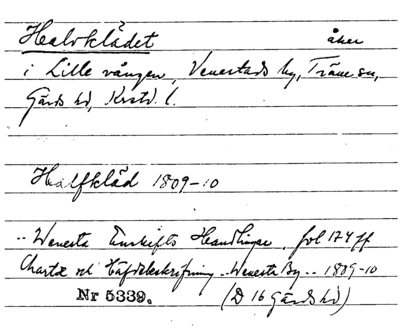 Halvklädet åker
i Lille vången, Venestads by, Träne sn,
Gärds hd, Krstd. l.
Halfkläd 1809-10
.. Wenesta Enskifts Handlingar, fol 174 ff
Charta och Häfdebeskrifning .. Wenesta By .. 1809-10
Nr 5339. (D 16 Gärds hd)